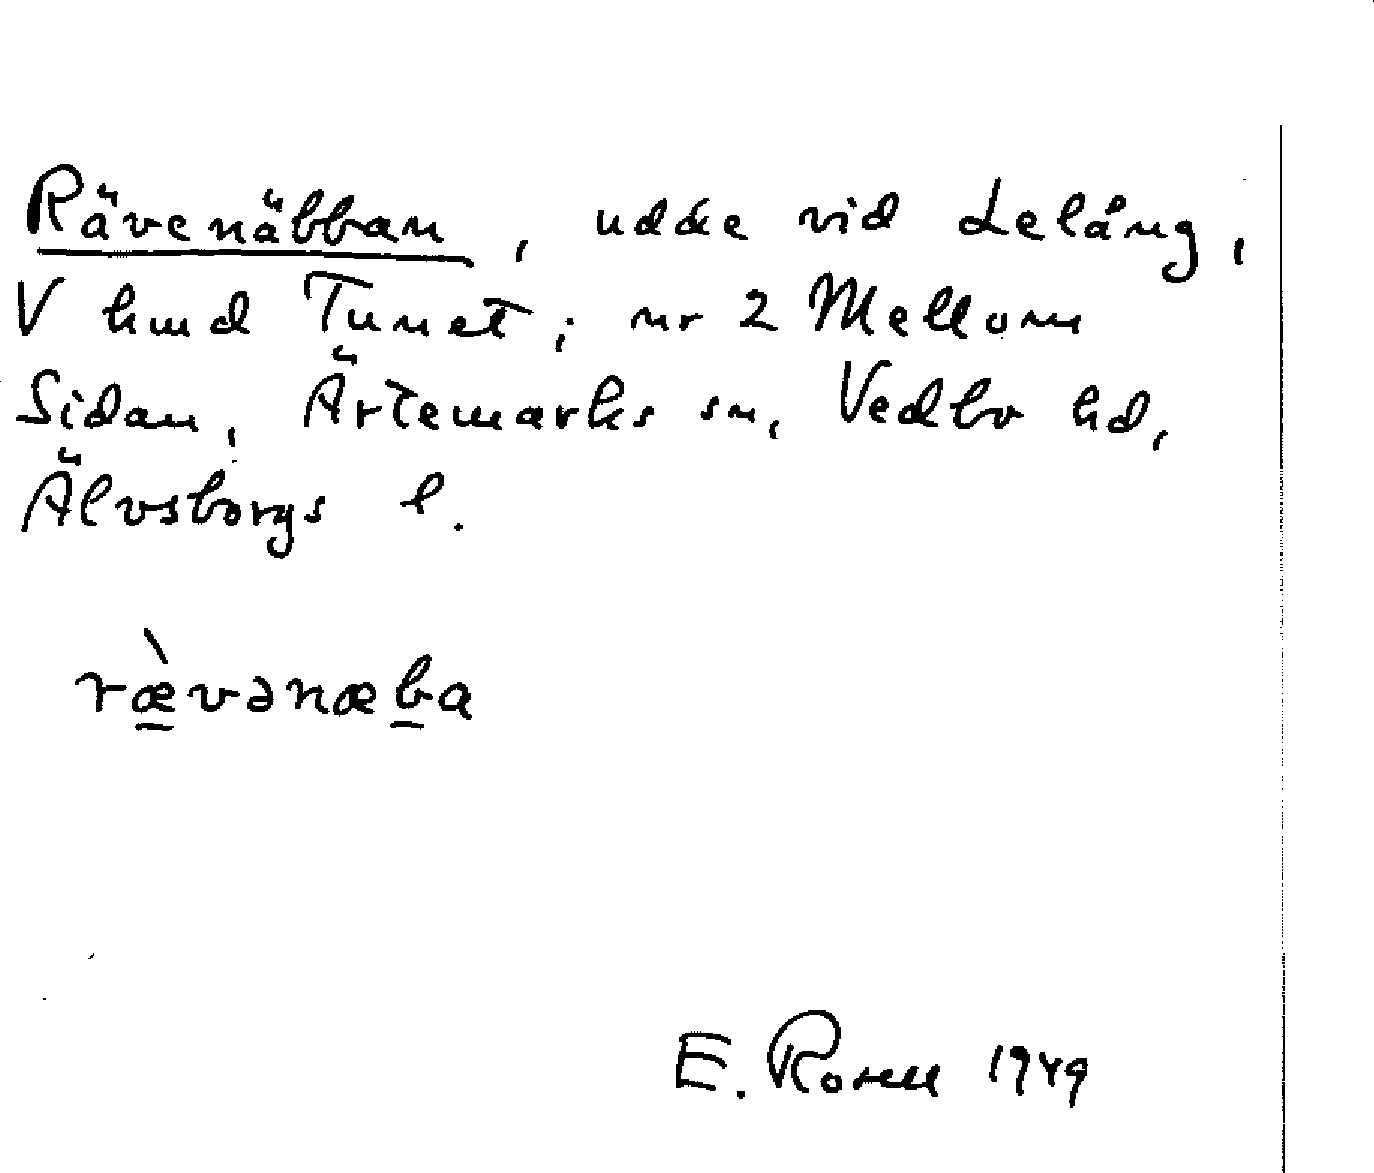 Rävenäbban, udde vid Lelång,
V hmd Tunet; nr 2 Mellom
Sidan, Ärtemarks sn, Vedbo hd,
Älvsborgs l.
ræ̀vənæba
E. Rosell 1949